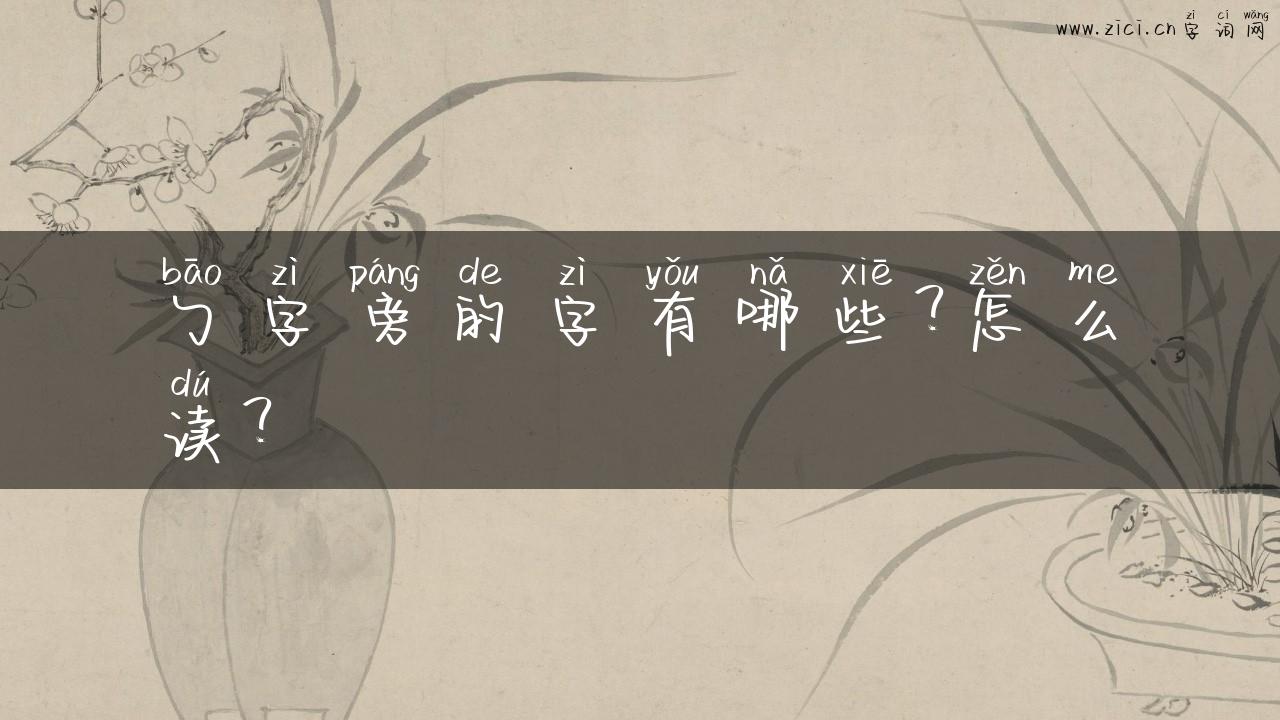 zì cí wǎng
www.zici.cn 字词网
bāo zì páng de zì yǒu nǎ xiē zěn me
勹字旁的字有哪些？怎么
dú
读？